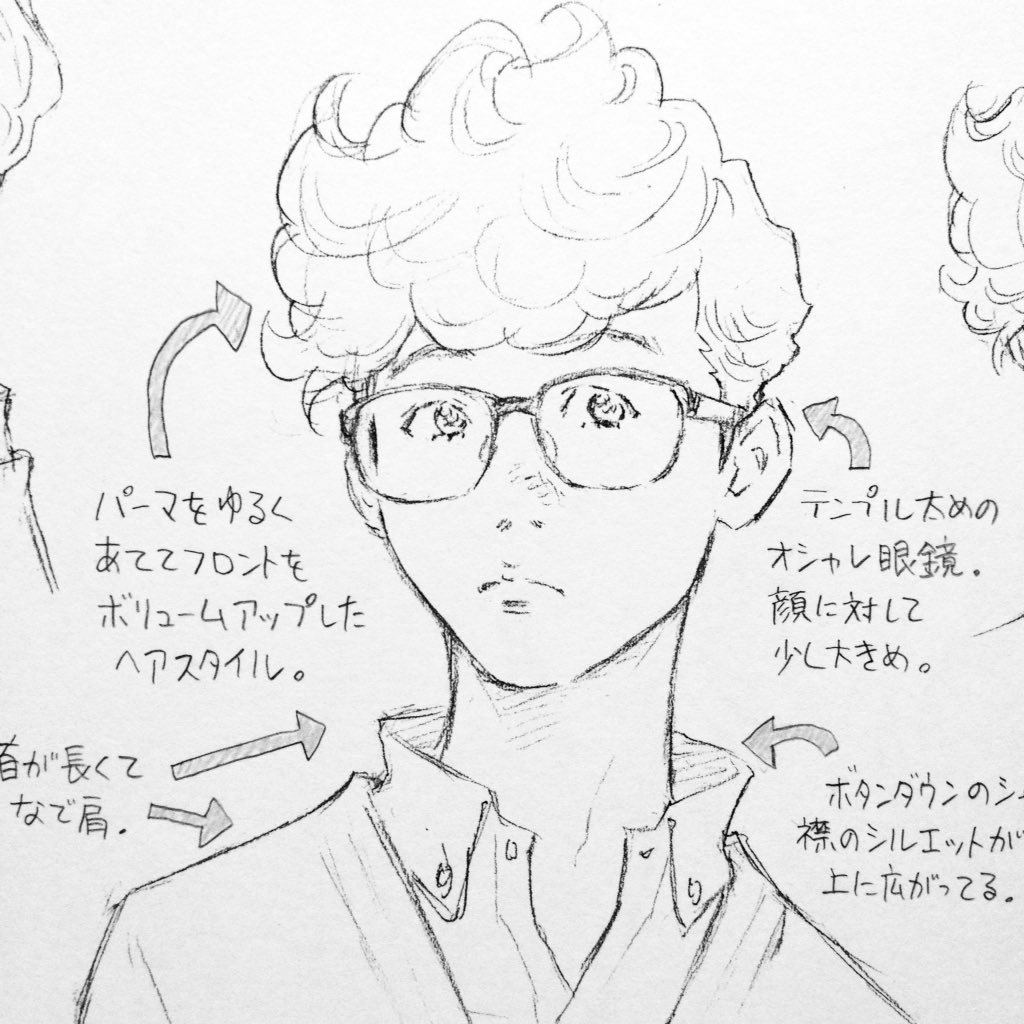 パーマをゆるく
あててフロントを
ボリュームアップした
ヘアスタイル。
テンプル太めの
オシャレ眼鏡。
顔に対して
少し大きめ。
首が長くて
なで肩。
ボタンダウンのシ
襟のシルエットが
上に広がってる。